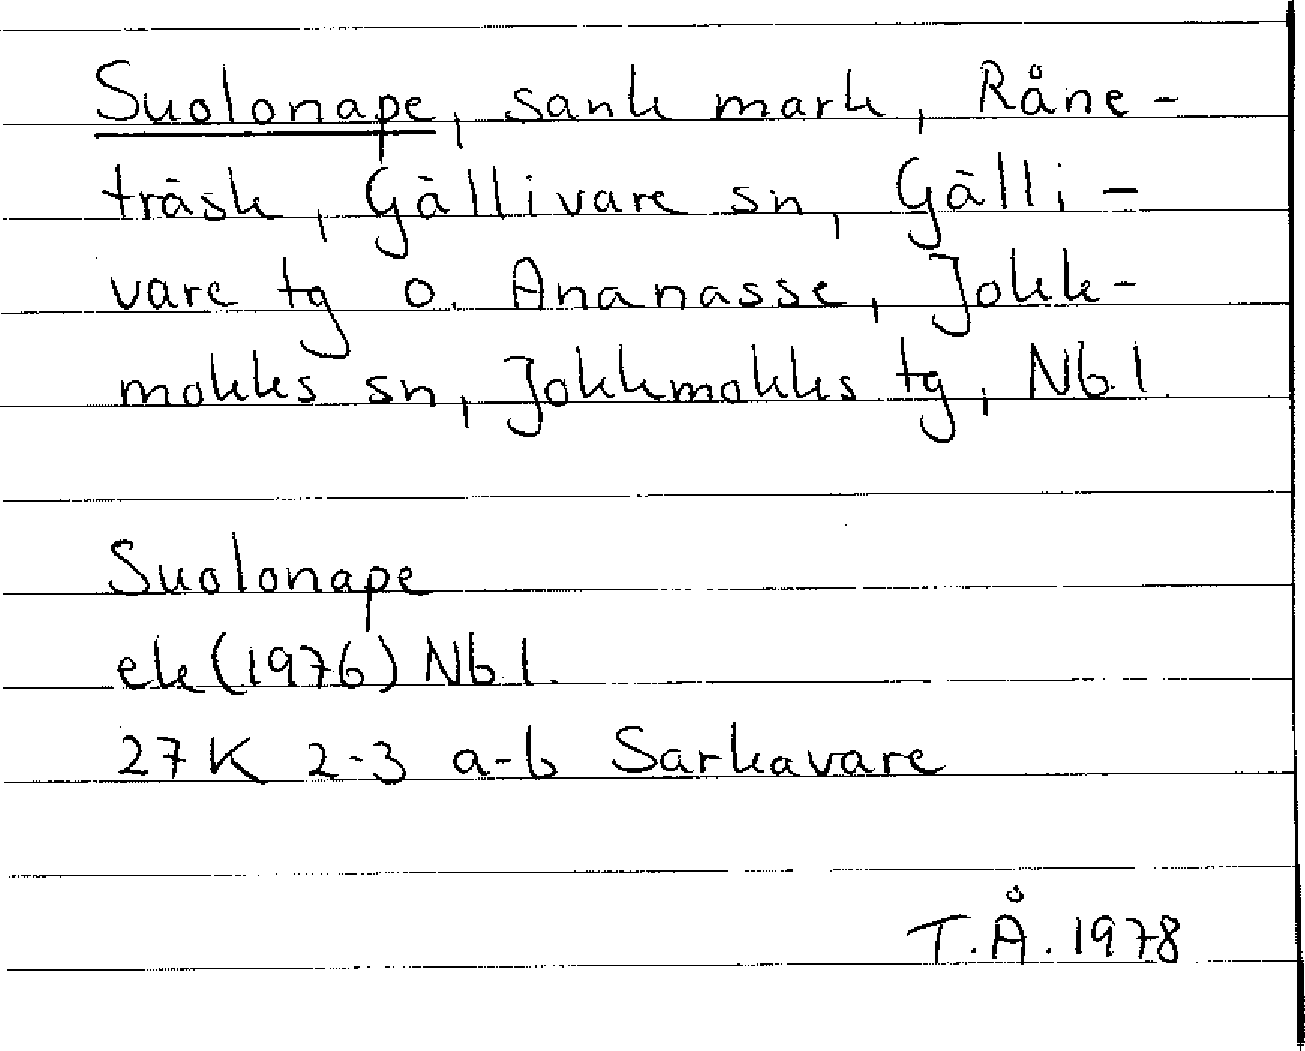 Suolonape, sank mark, Råne-
träsk, Gällivare sn, Gälli-
vare tg o. Ananasse, Jokk-
mokks sn, Jokkmokks tg, Nb.l.
Suolonape
ek (1976) Nb l.
27 K 2-3 a-b Sarkavare
T.Å. 1978